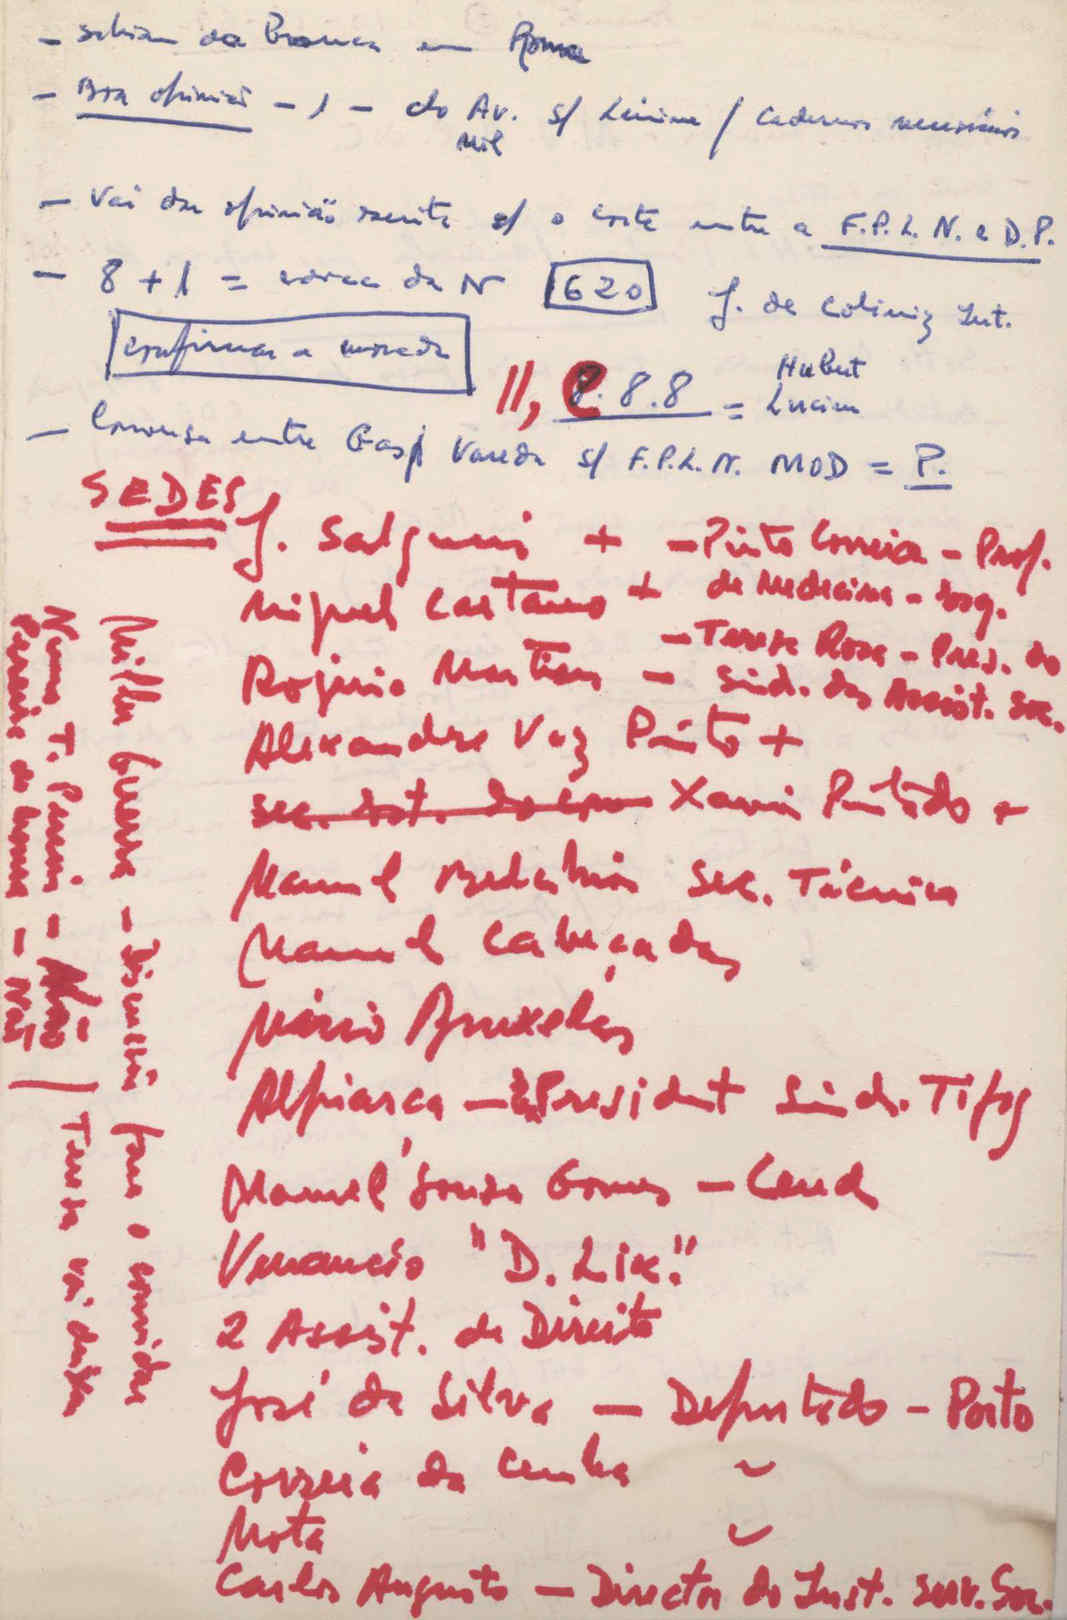 - sabiam da Branca em Roma
- Boa opinião - 1 - do Av. s/ Lénine / cadernos necessários
Mil
- Vai dar opinião escrita s/ o corte entre a F.P.L.N. e D.P.
- 8 + 1 = da N 620 J. de Coliniz Int.
confirmar a morada
Hubert
11, 8.8.8 = Lucien
- Conversa entre Gasp Vareda s/ F.P.L.N. MOD = P.
SEDES
J. Salgueiro + - Pinto Correia - Prof.
Miguel Caetano + de Medicina - Sog.
- Teresa Rosa - Pres. do
Rogério Martins - Sind. das Assist. Soc.
Alexandre Vaz Pinto +
sec. Est. do Xavier Pintado +
Manuel Belchior Sec. Técnico
Manuel Cabeçadas
Mário Bruxelas
Alpiarça - President Sind. Tipog
Manuel Sousa Gomes -
Venancio "D. Lix."
2 Assist. de Direito
José da Silva - Deputado - Porto
Correia da Cunha ~
Mota ~
Carlos Augusto - Director do Inst. Serv. Soc.
Miller Guerra - Discussão para o convidar
Nuno T. Pereira - Não
Pereira de Moura - Não / Tense vai